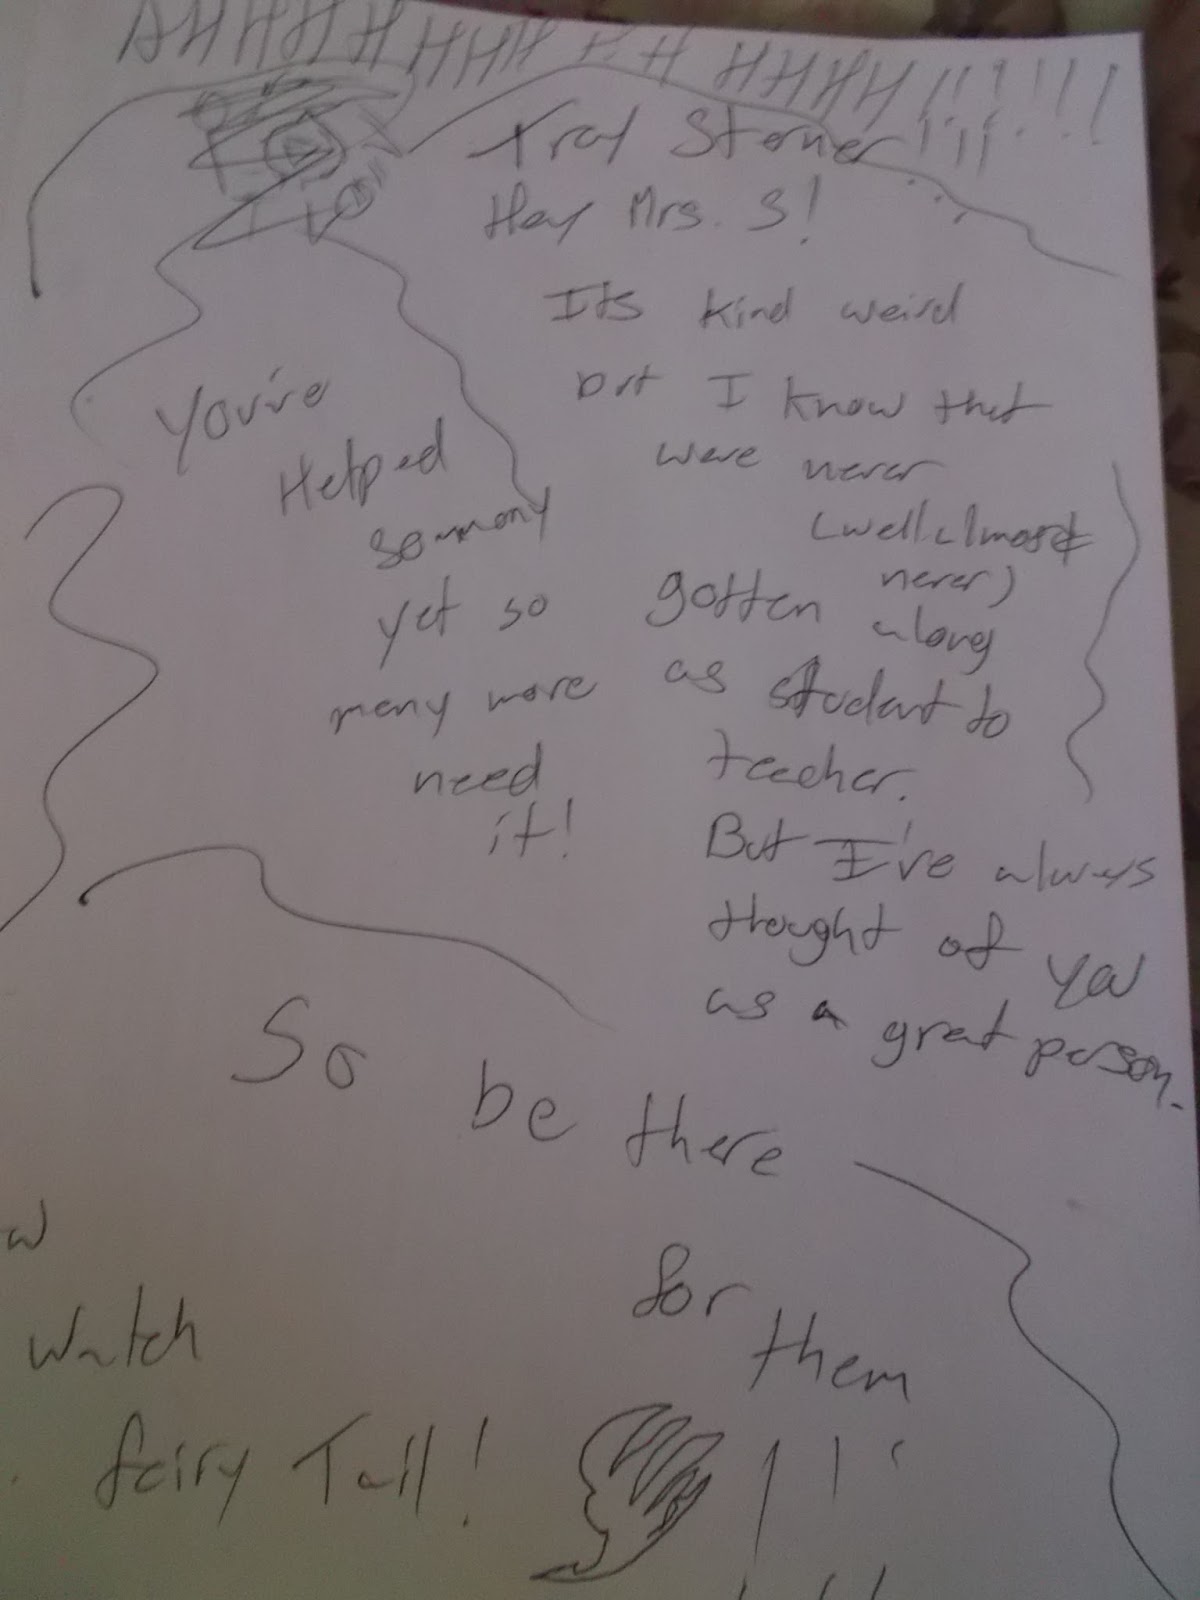 AHHHHHHHHHHHHHH!!!!!!
Troy Stoner!!!!
Hey Mrs. S!
Its kind weird
but I know that
were never
(well almost
never)
gotten along
as student to
teacher.
But I've always
thought of you
as a great person.
You've
Helped
so many
yet so
many more
need
it!
So be there
for
them
!!!
w
Watch
fairy Tail!